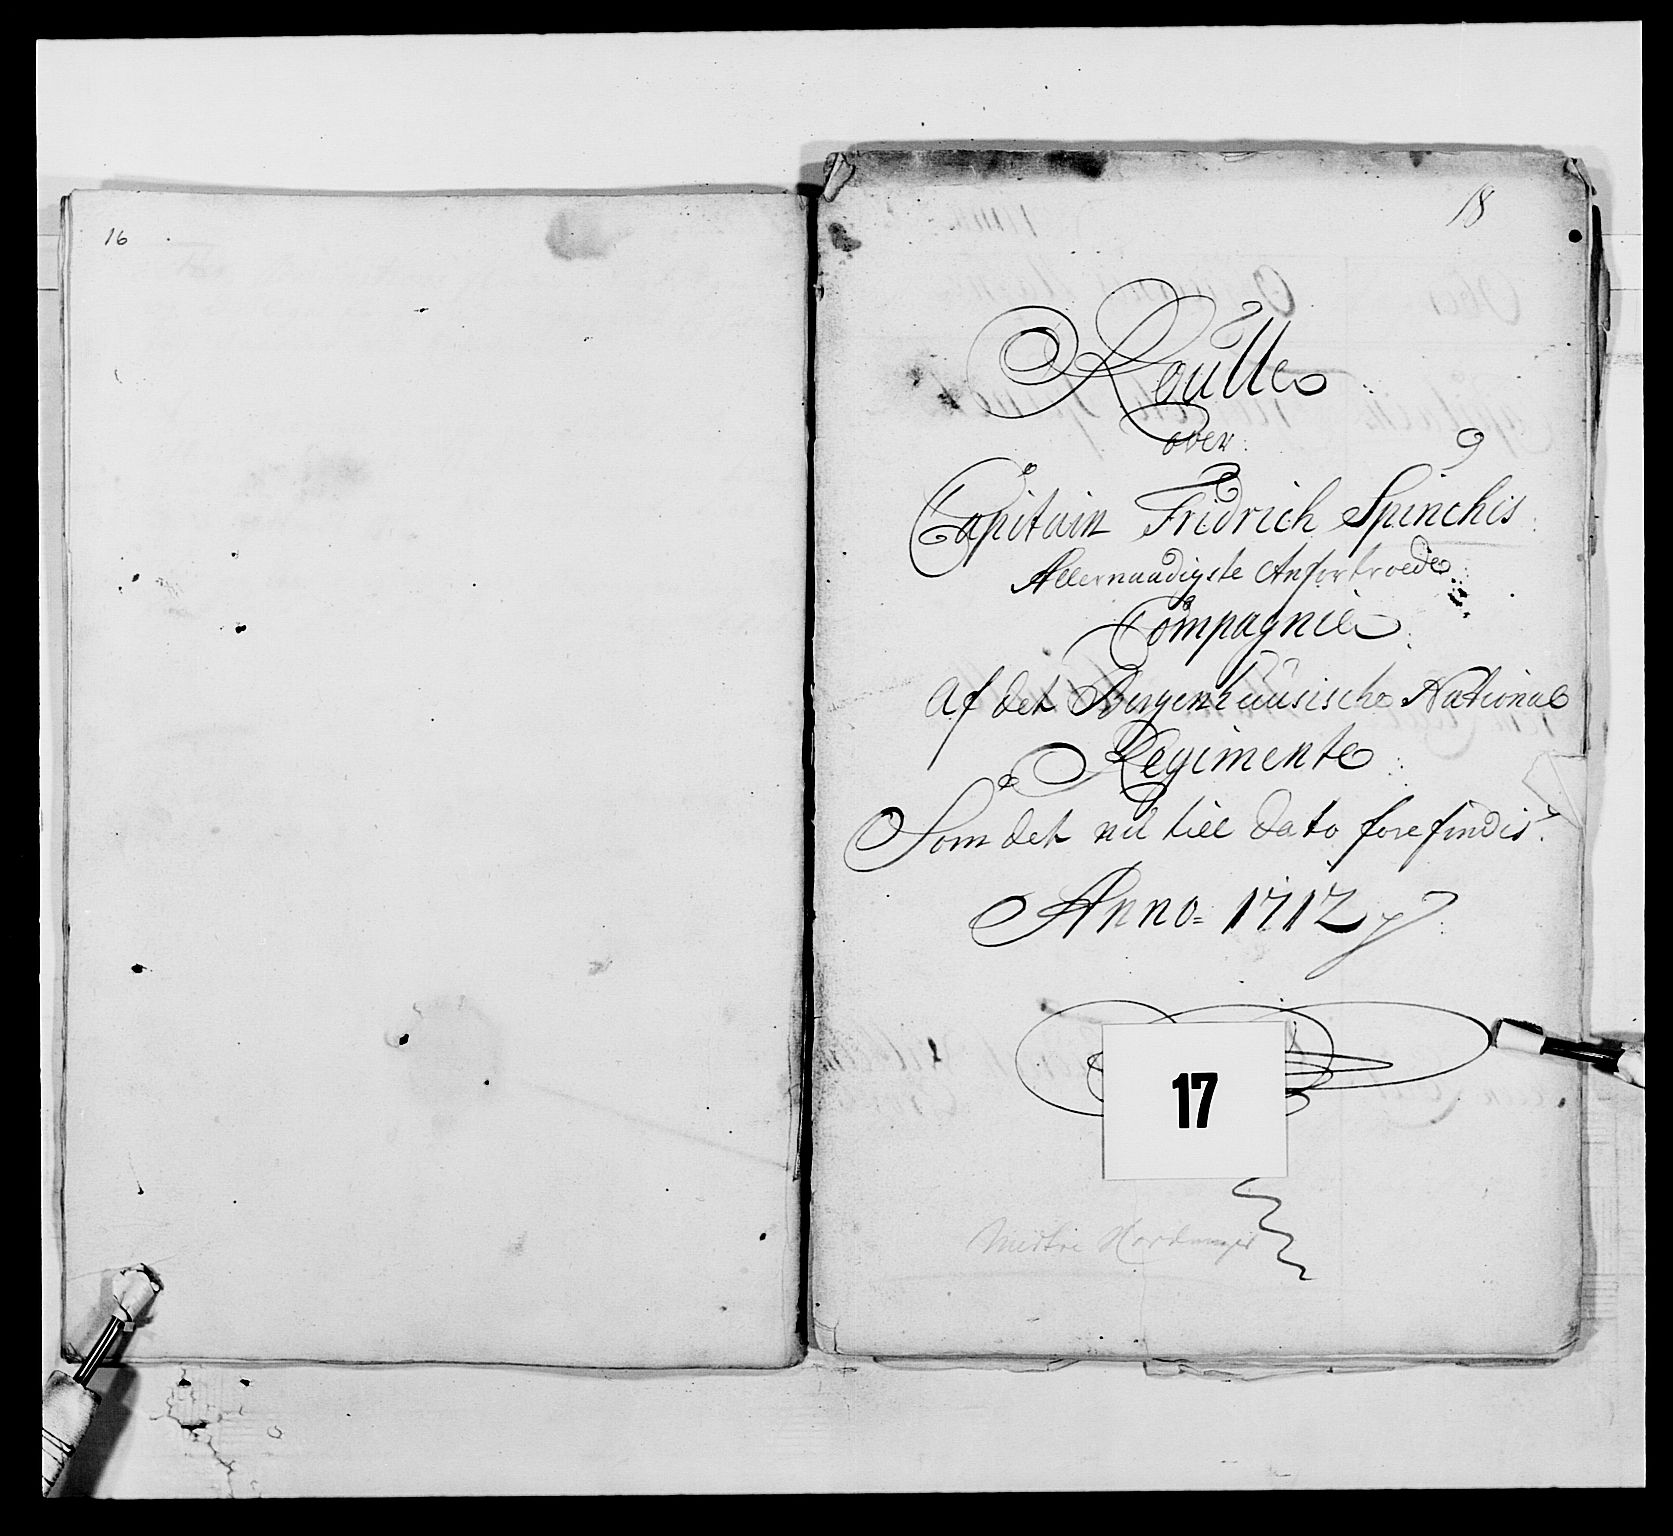 16
18
Roulle
over
Capitain Fridrich Spinchis
Allernaadigste Anfortroede
Compagnie
Af det Bergenhuusische National
Regimente
Som det nu till dato forefindis.
Anno= 1712
17